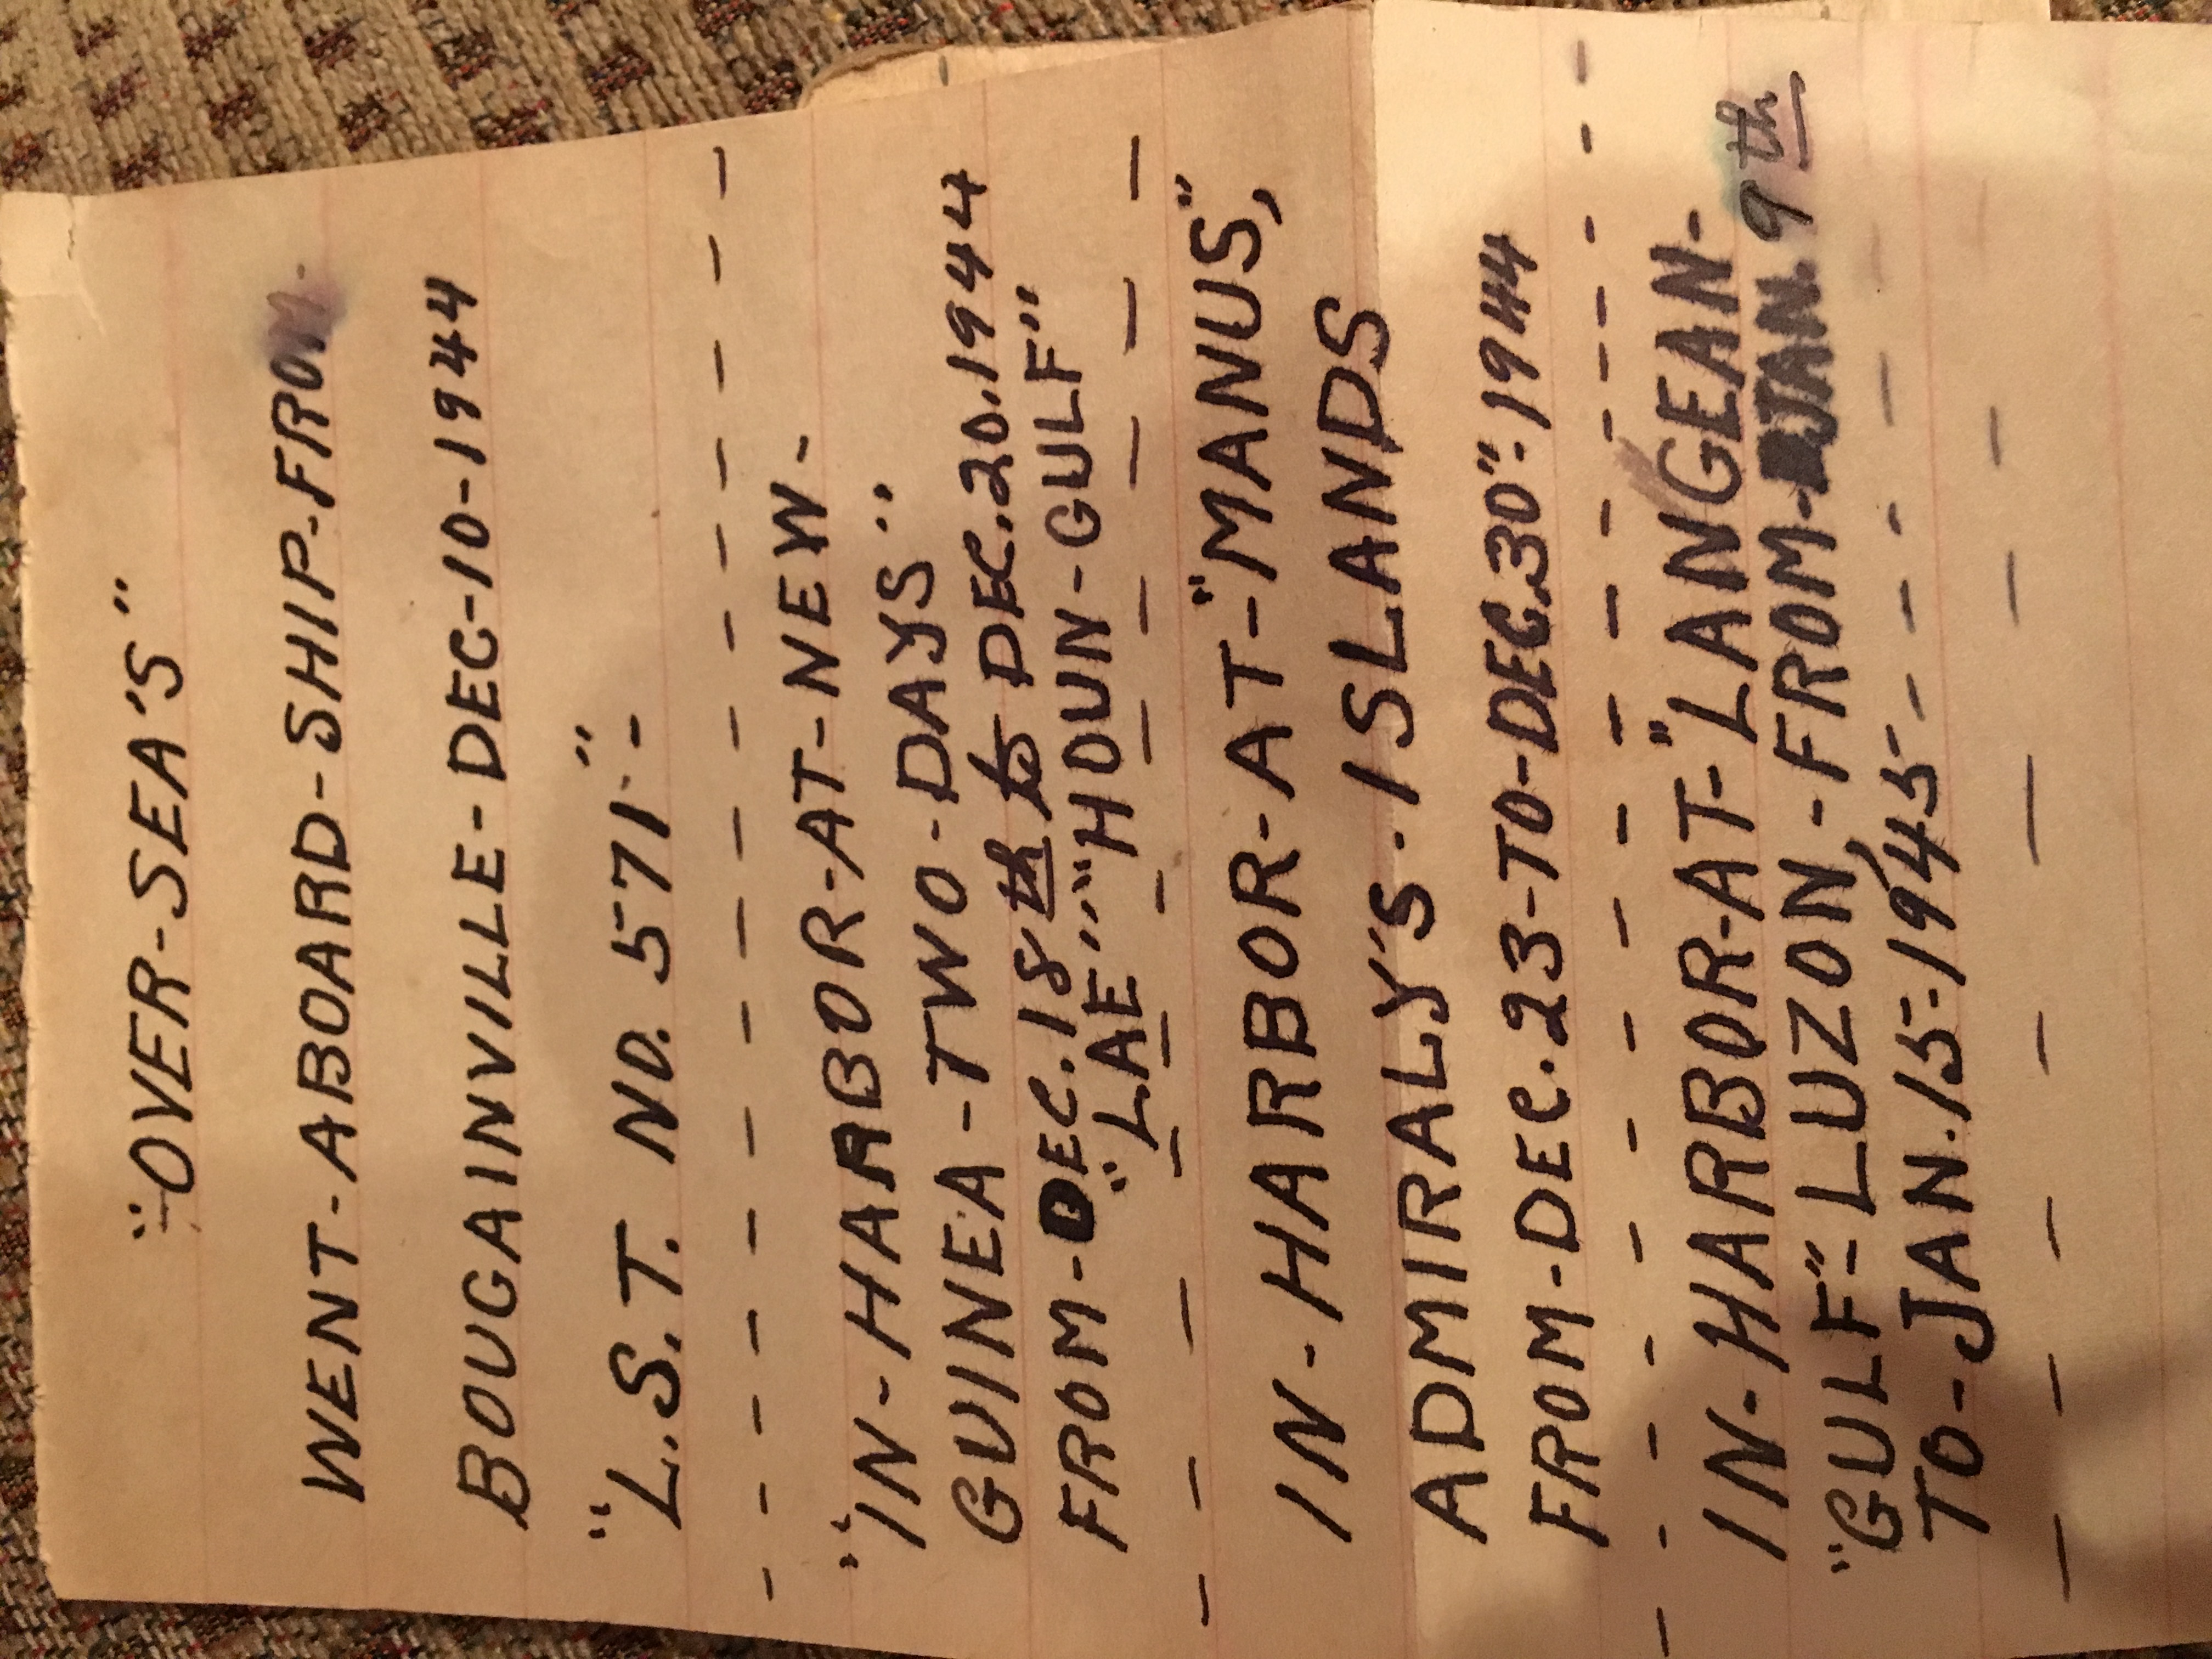 "-OVER-SEA'S"
WENT-ABOARD-SHIP-FROM-
BOUGAINVILLE-DEC-10-1944
"L.S.T. NO. 571"-
"IN-HARBOR-AT-NEW-
GUINEA-TWO-DAYS"
FROM-DEC.18th to DEC.20.1944
"LAE" "HOUN-GULF"
IN-HARBOR-AT-"MANUS,"
ADMIRALY'S-ISLANDS
FROM-DEC.23-TO-DEC.30"-1944
IN-HARBOR-AT-"LANGEAN-
"GULF"-LUZON,-FROM-JAN. 9th
TO-JAN.15-1945-